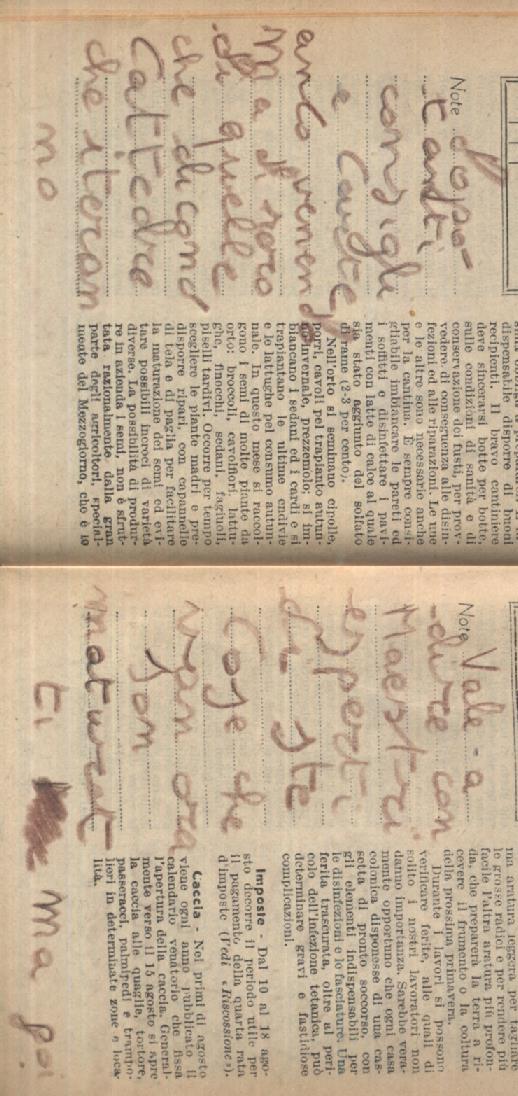 Note dopo
tanti
consigli
e
anco venend
Ma di
di quelle
che dicono
Cattedre
che
mo
dispensabile disporre di buoni
recipienti. Il bravo cantiniere
deve sincerarsi botte per botte,
sulle condizioni di sanità e di
conservazione dei fusti, per prov-
vedere di conseguenza alle disin-
fezioni ed alle riparazioni. Le une
e le altre sono necessarie anche
per la cantina. È sempre consi-
gliabile imbiancare le pareti ed
i soffitti e disinfettare i pavi-
menti con latte di calce al quale
sia stato aggiunto del solfato
di rame (2-3 per cento).
Nell'orto si seminano cipolle,
porri, cavoli pel trapianto autun-
no invernale, prezzemolo; si im-
biancano i sedani ed i cardi e si
trapiantano le ultime endivie
e le lattughe pel consumo autun-
nale. In questo mese si raccol-
gono i semi di molte piante da
orto: broccoli, cavolfiori, lattu-
ghe, finocchi, sedani, fagiuoli,
piselli tardivi. Occorre per tempo
scegliere le piante madri e pre-
disporre i ripari con capannelle
di tela e di paglia per facilitare
la maturazione dei semi ed evi-
tare possibili incroci di varietà
diverse. La possibilità di produr-
re in azienda i semi, non è sfrut-
tata razionalmente dalla gran
parte degli agricoltori, special-
mente del Mezzogiorno, che è lo
Note Vale-a
dire con
Maestri
esperti
di ste
Cose che
van ora
son
maturat
ti ma poi
ma aratura leggera per tagliare
le grosse radici e per rendere più
facile l'altra aratura più profon-
da, che preparerà la terra a ri-
cevere il frumento o la coltura
della prossima primavera.
Durante i lavori si possono
verificare ferite, alle quali di
solito i nostri lavoratori non
danno importanza. Sarebbe vera-
mente opportuno che ogni casa
colonica disponesse di una cas-
setta di pronto soccorso, con
gli elementi indispensabili per
le disinfezioni e le fasciature. Una
ferita trascurata, oltre al peri-
colo dell'infezione tetanica, può
determinare gravi e fastidiose
complicazioni.
Imposte - Dal 10 al 18 ago-
sto decorre il periodo utile per
il pagamento della quarta rata
d'imposte (Vedi « Riscossione »).
Caccia - Nei primi di agosto
viene ogni anno pubblicato il
calendario venatorio che fissa
l'apertura della caccia. General-
mente verso il 15 agosto si apre
la caccia alle quaglie, tortore,
passeracei, palmipedi e trampo-
lieri in determinate zone e loca-
lità.